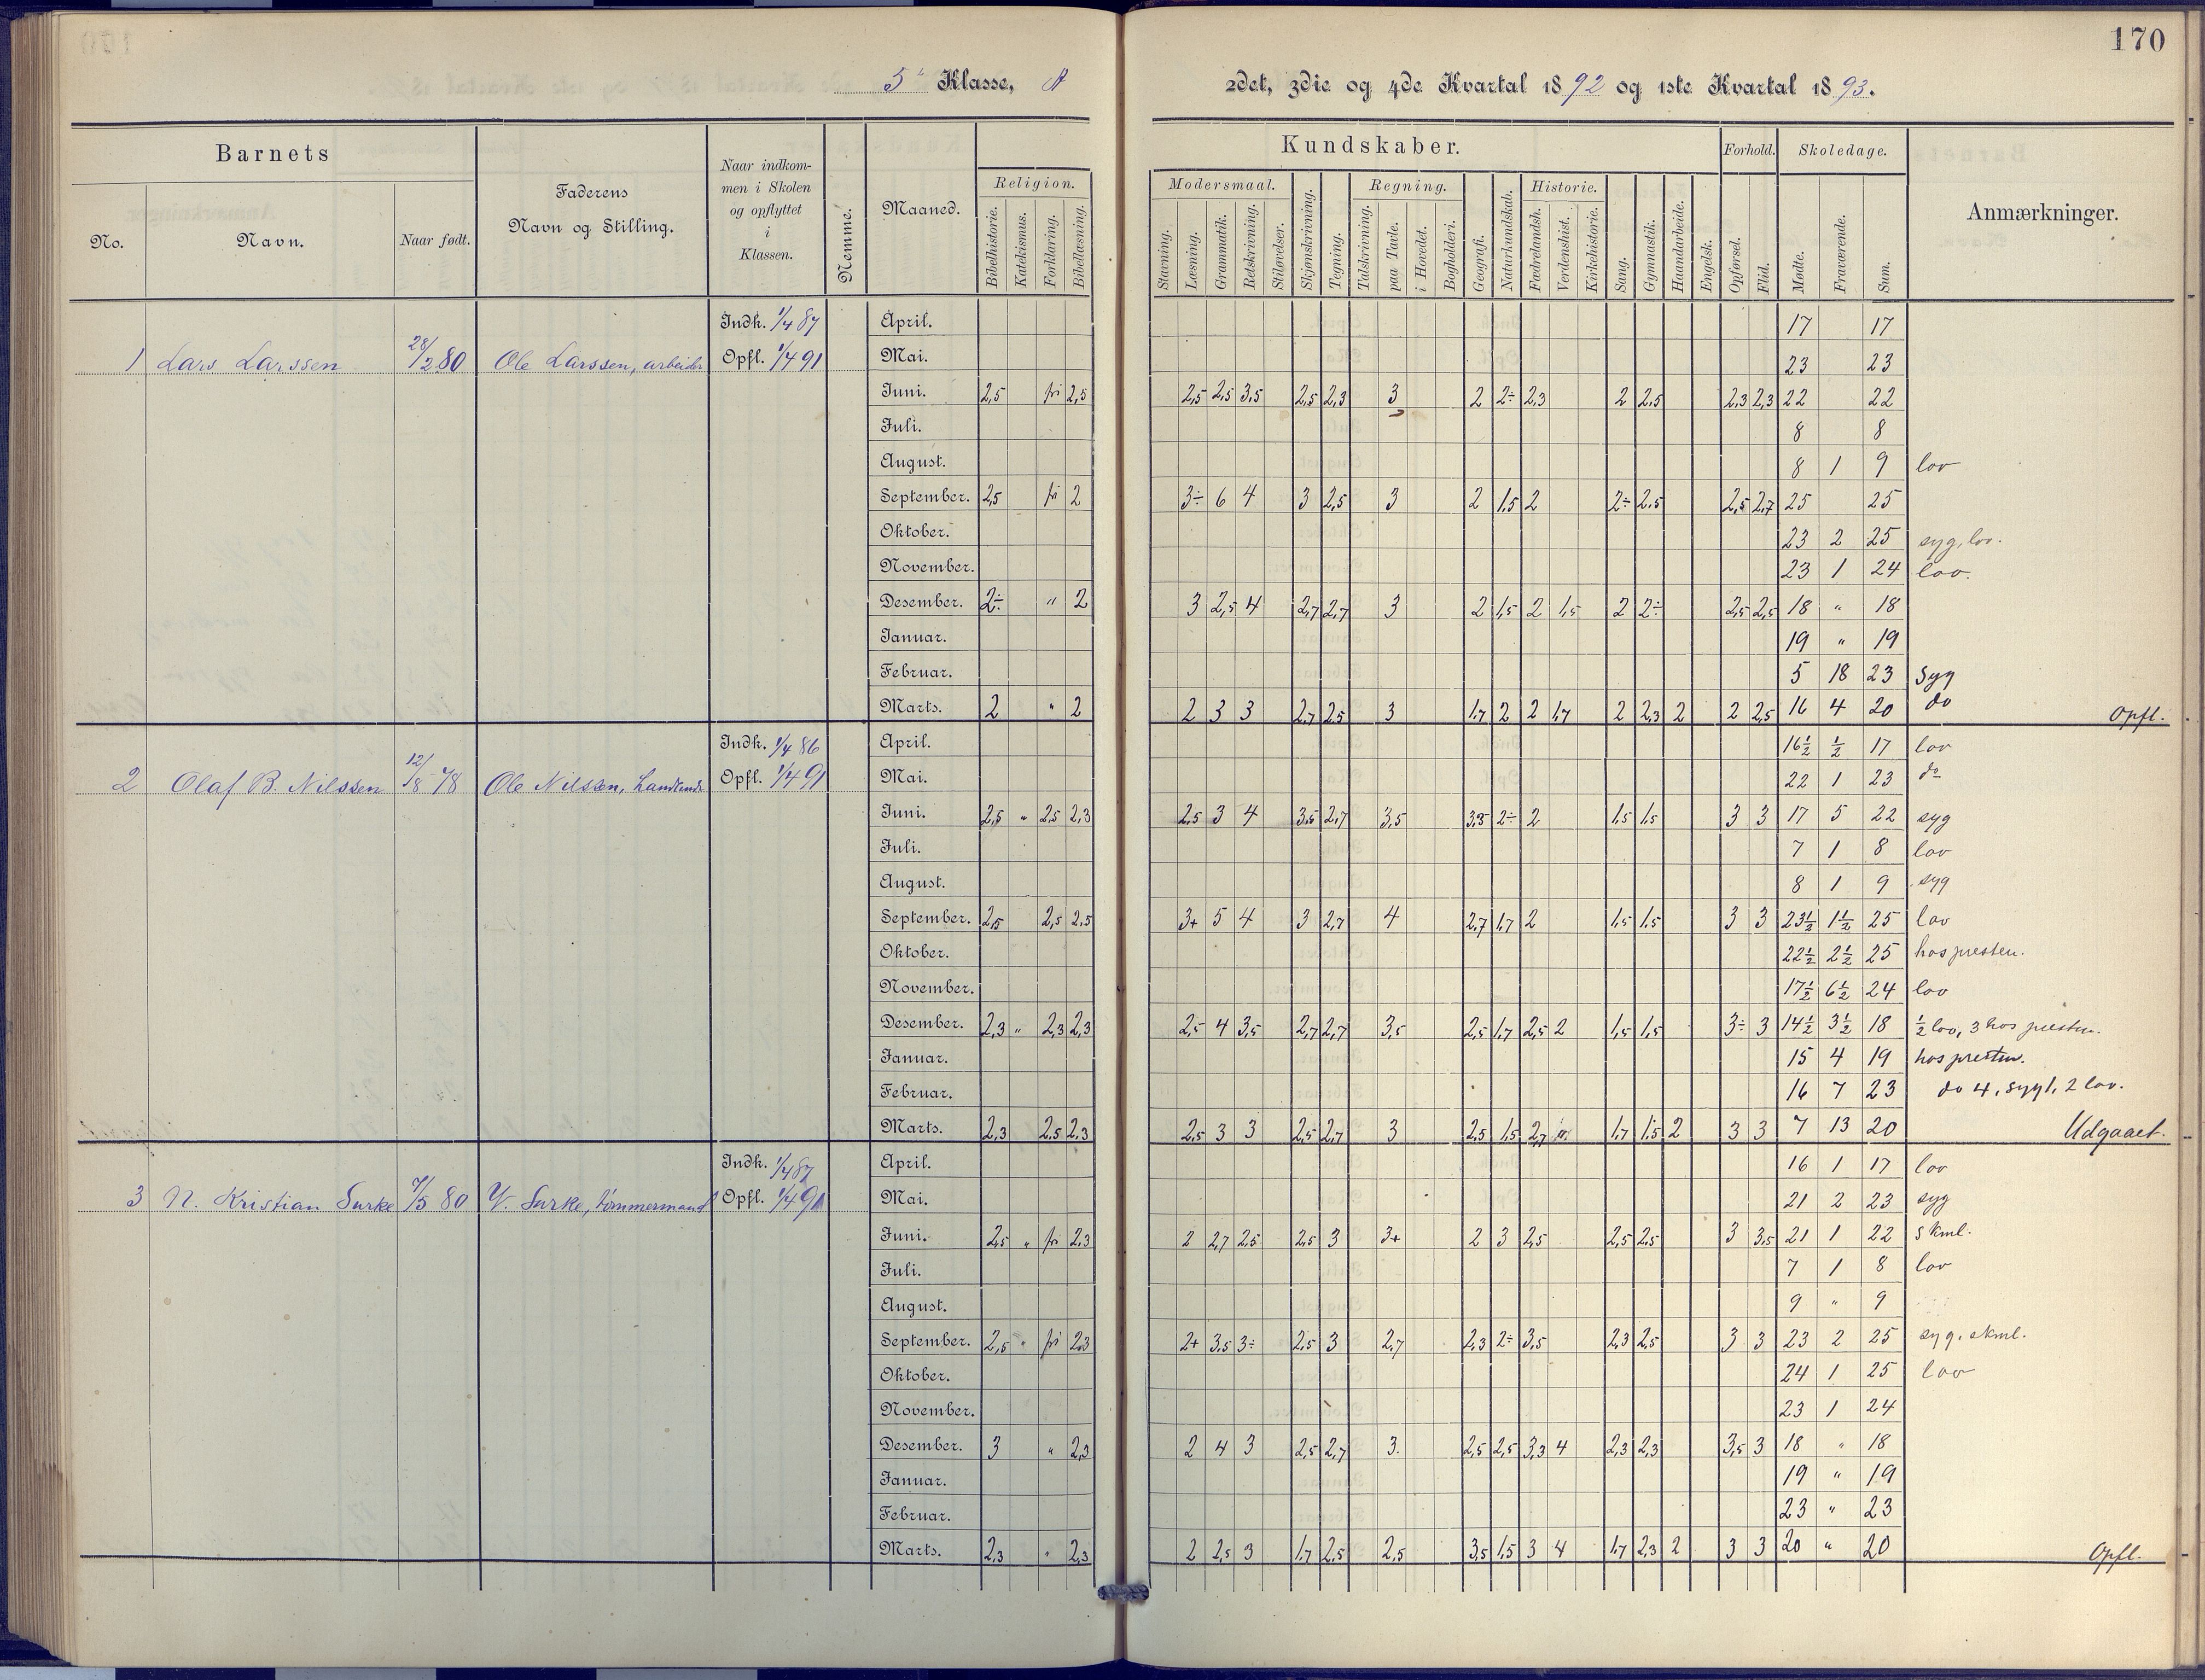 170
5 Klasse, A 2det, 3die og 4de Kvartal 1892 og 1ste Kvartal 1893.
Barnets
No. Navn. Naar født.
Faderens Navn og Stilling.
Naar indkommen i Skolen og opflyttet i Klassen.
Nemme.
Maaned.
Kundskaber.
Religion.
Bibelhistorie. Katekismus. Forklaring. Bibellæsning.
Modersmaal.
Stavning. Læsning. Grammatik. Retskrivning. Stiløvelser.
Skjønskrivning. Tegning.
Regning.
Talskrivning. paa Tavle. i Hovedet. Bogholderi.
Geografi. Naturkundskab.
Historie.
Fædrelandsh. Verdenshist. Kirkehistorie.
Sang. Gymnastik. Haandarbeide. Engelsk.
Forhold.
Opførsel. Flid.
Skoledage.
Mødte. Fraværende. Sum.
Anmærkninger.
1 Lars Larssen 28/2 80 Ole Larssen, arbeider Indk. 1/4 87 Opfl. 1/4 91
April. 17 17
Mai. 23 23
Juni. 2,5 fri 2,5 2,5 2,5 3,5 2,5 2,3 3 2 2÷ 2,3 2 2,5 2,3 2,3 22 22
Juli. 8 8
August. 8 1 9 lov
September. 2,5 fri 2 3÷ 6 4 3 2,5 3 2 1,5 2 2÷ 2,5 2,5 2,7 25 25
Oktober. 23 2 25 syg, lov.
November. 23 1 24 lov.
Desember. 2÷ " 2 3 2,5 4 2,7 2,7 3 2 1,5 2 1,5 2 2÷ 2,5 2,5 18 " 18
Januar. 19 " 19
Februar. 5 18 23 Syg
Marts. 2 " 2 2 3 3 2,7 2,5 3 1,7 2 2 1,7 2 2,3 2 2 2,5 16 4 20 do Opfl.
2 Olaf B. Nilssen 12/8 78 Ole Nilssen, Indk. 1/4 86 Opfl. 1/4 91
April. 16½ ½ 17 lov
Mai. 22 1 23 do
Juni. 2,5 " 2,5 2,3 2,5 3 4 3,5 2,7 3,5 3,5 2÷ 2 1,5 1,5 3 3 17 5 22 syg
Juli. 7 1 8 lov
August. 8 1 9 syg
September. 2,5 2,5 2,5 3+ 5 4 3 2,7 4 2,7 1,7 2 1,5 1,5 3 3 23½ 1½ 25 lov
Oktober. 22½ 2½ 25 hos presten.
November. 17½ 6½ 24 lov
Desember. 2,3 " 2,3 2,3 2,5 4 3,5 2,7 2,7 3,5 2,5 1,7 2,5 2 1,5 1,5 3÷ 3 14½ 3½ 18 ½ lov, 3 hos presten.
Januar. 15 4 19 hos presten.
Februar. 16 7 23 do 4, syg 1, 2 lov.
Marts. 2,3 2,5 2,3 2,5 3 3 2,5 2,7 3 2,5 1,5 2,7 " 1,7 1,5 2 3 3 7 13 20 Udgaaet.
3 N. Kristian Surke 7/5 80 Surke, tømmermand Indk. 1/4 87 Opfl. 1/4 91
April. 16 1 17 lov
Mai. 21 2 23 syg
Juni. 2,5 " fri 2,3 2 2,7 2,5 2,5 3 3+ 2 3 2,5 2,5 2,5 3 3,5 21 1 22 skml.
Juli. 7 1 8 lov
August. 9 " 9
September. 2,5 " fri 2,3 2+ 3,5 3÷ 2,5 3 2,7 2,3 2÷ 3,5 2,3 2,5 3 3 23 2 25 syg. skml.
Oktober. 24 1 25 lov
November. 23 1 24
Desember. 3 " 2,3 2 4 3 2,5 2,7 3. 2,5 2,5 3,3 4 2,3 2,3 3,5 3 18 " 18
Januar. 19 " 19
Februar. 23 " 23
Marts. 2,3 " 2,3 2 2,5 3 1,7 2,5 2,5 3,5 1,5 3 4 1,7 2,3 2 3 3 20 " 20 Opfl.